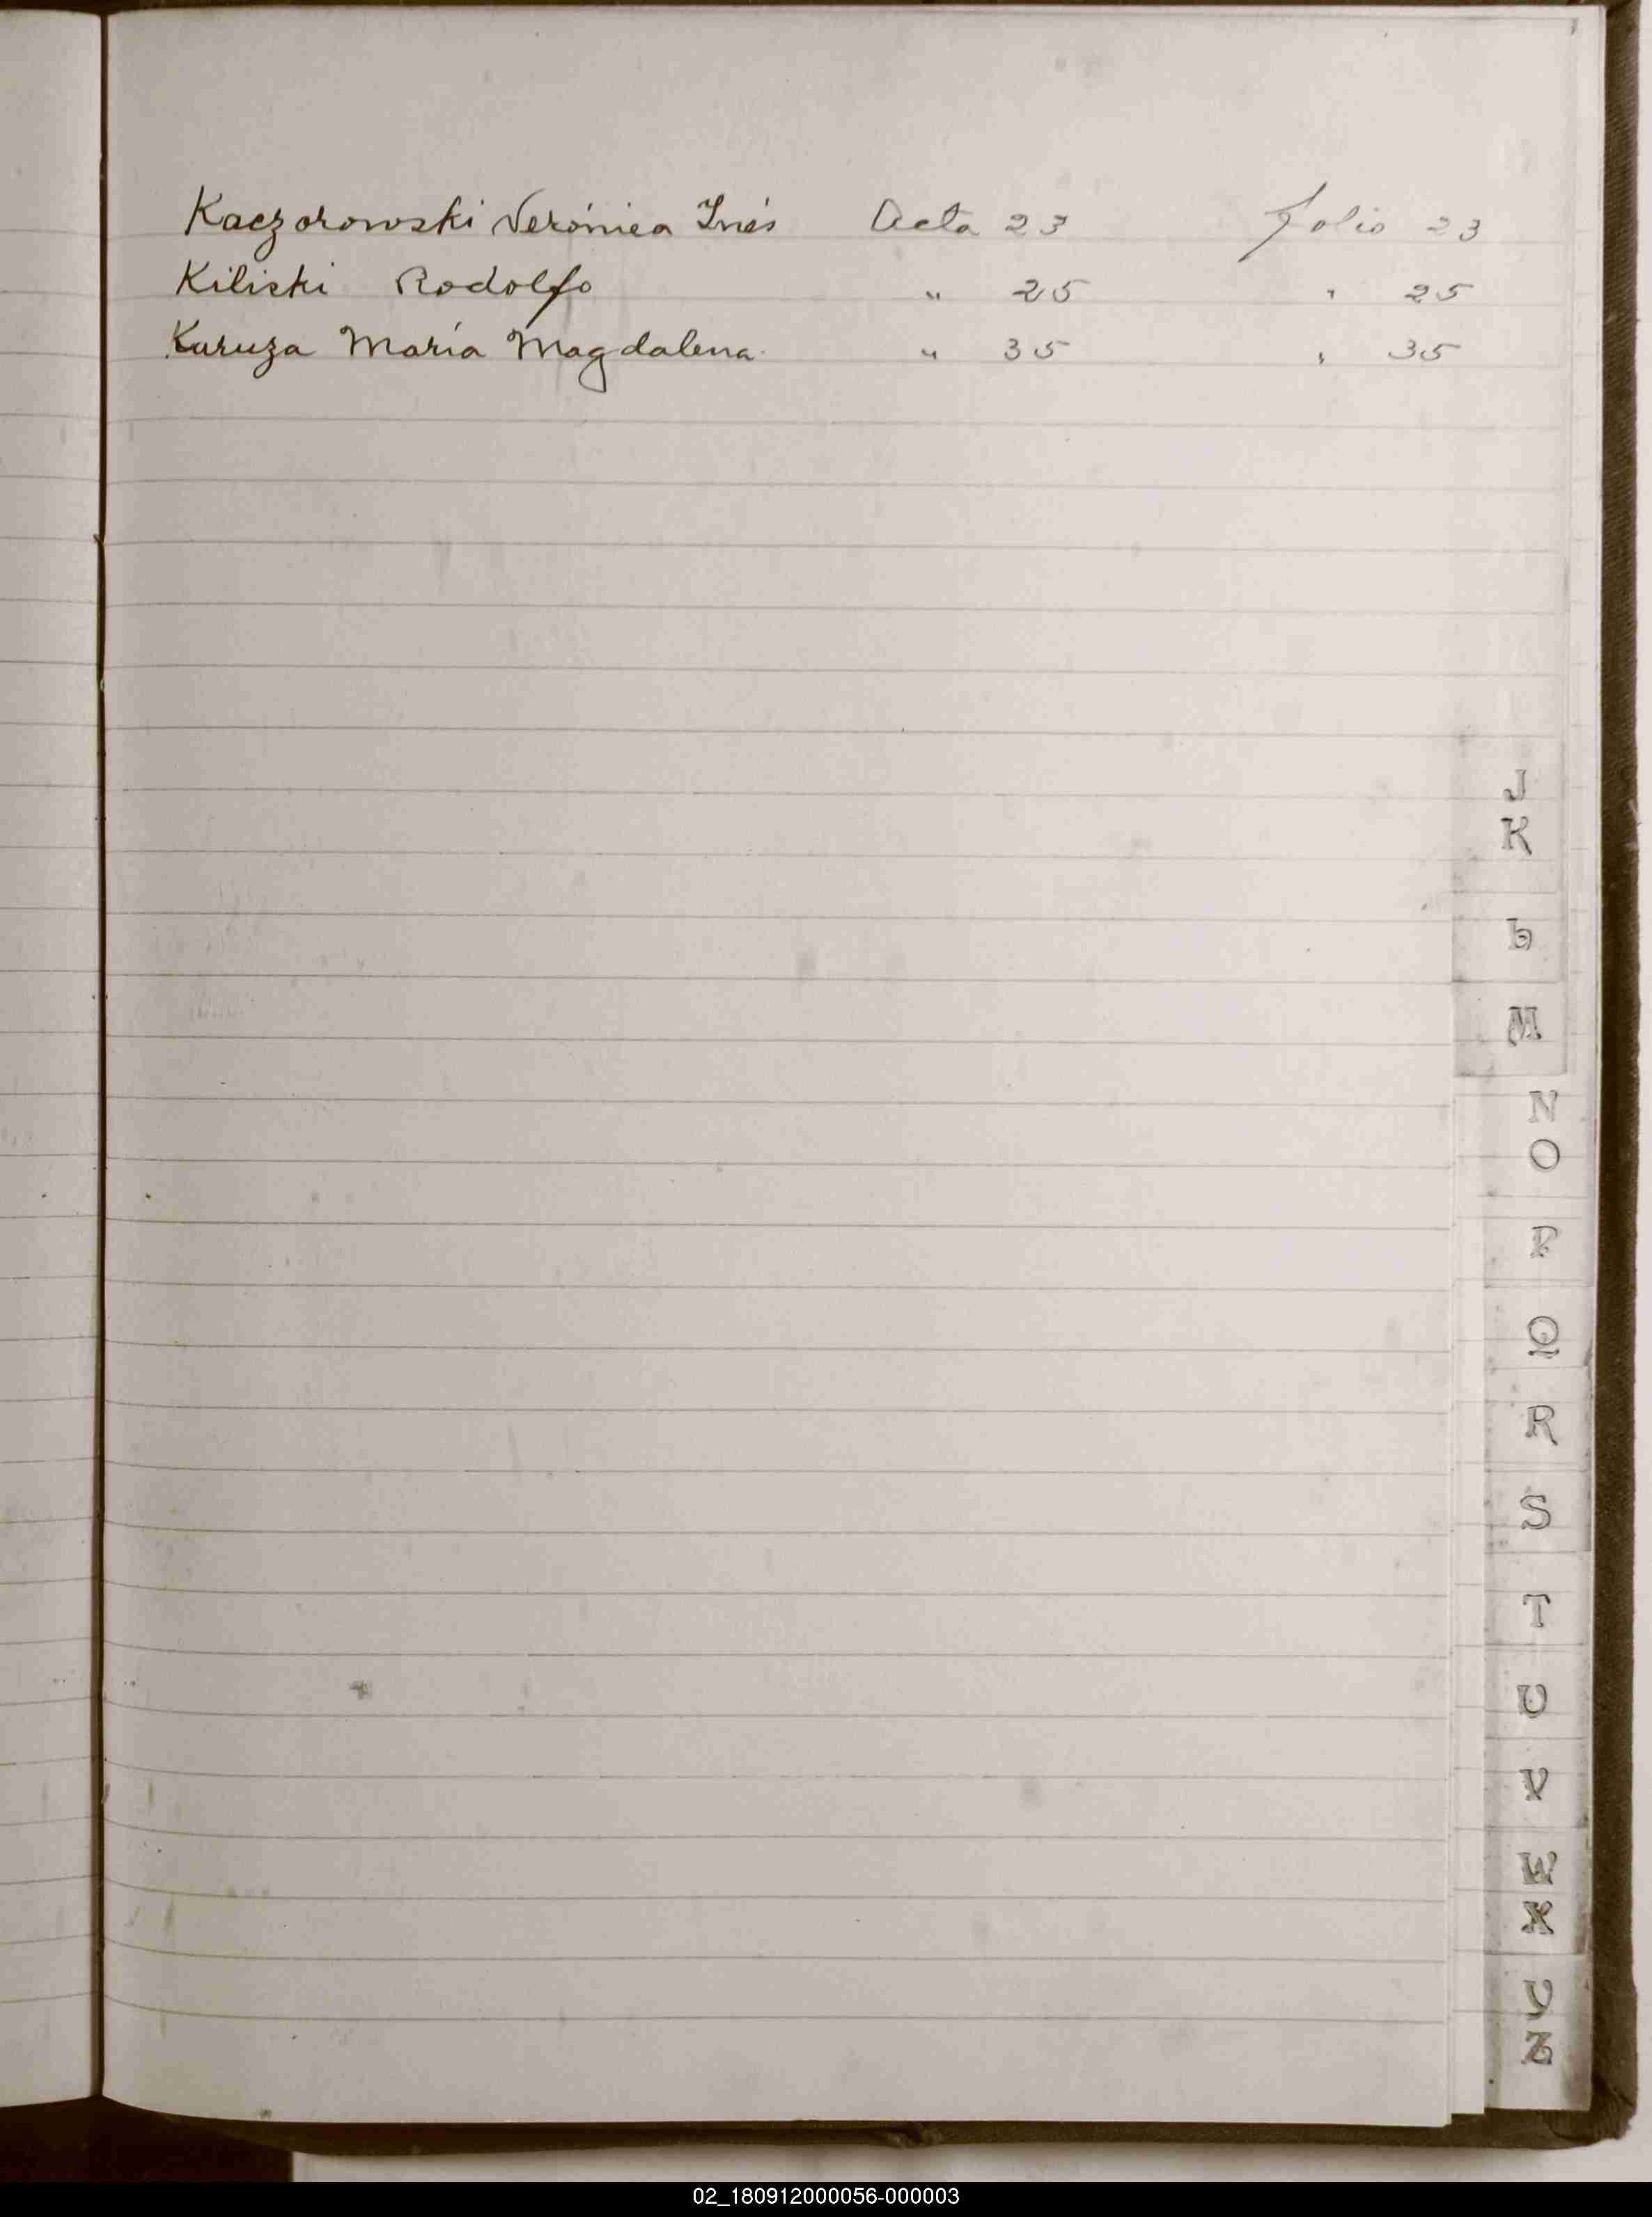 Kaczorowski Verónica Inés Acta 23 Folio 23
Kiliski Rodolfo " 25 " 25
Kuruza María Magdalena " 35 " 35
J
K
L
M
N
O
P
Q
R
S
T
U
V
W
X
Y
Z
02_180912000056-000003